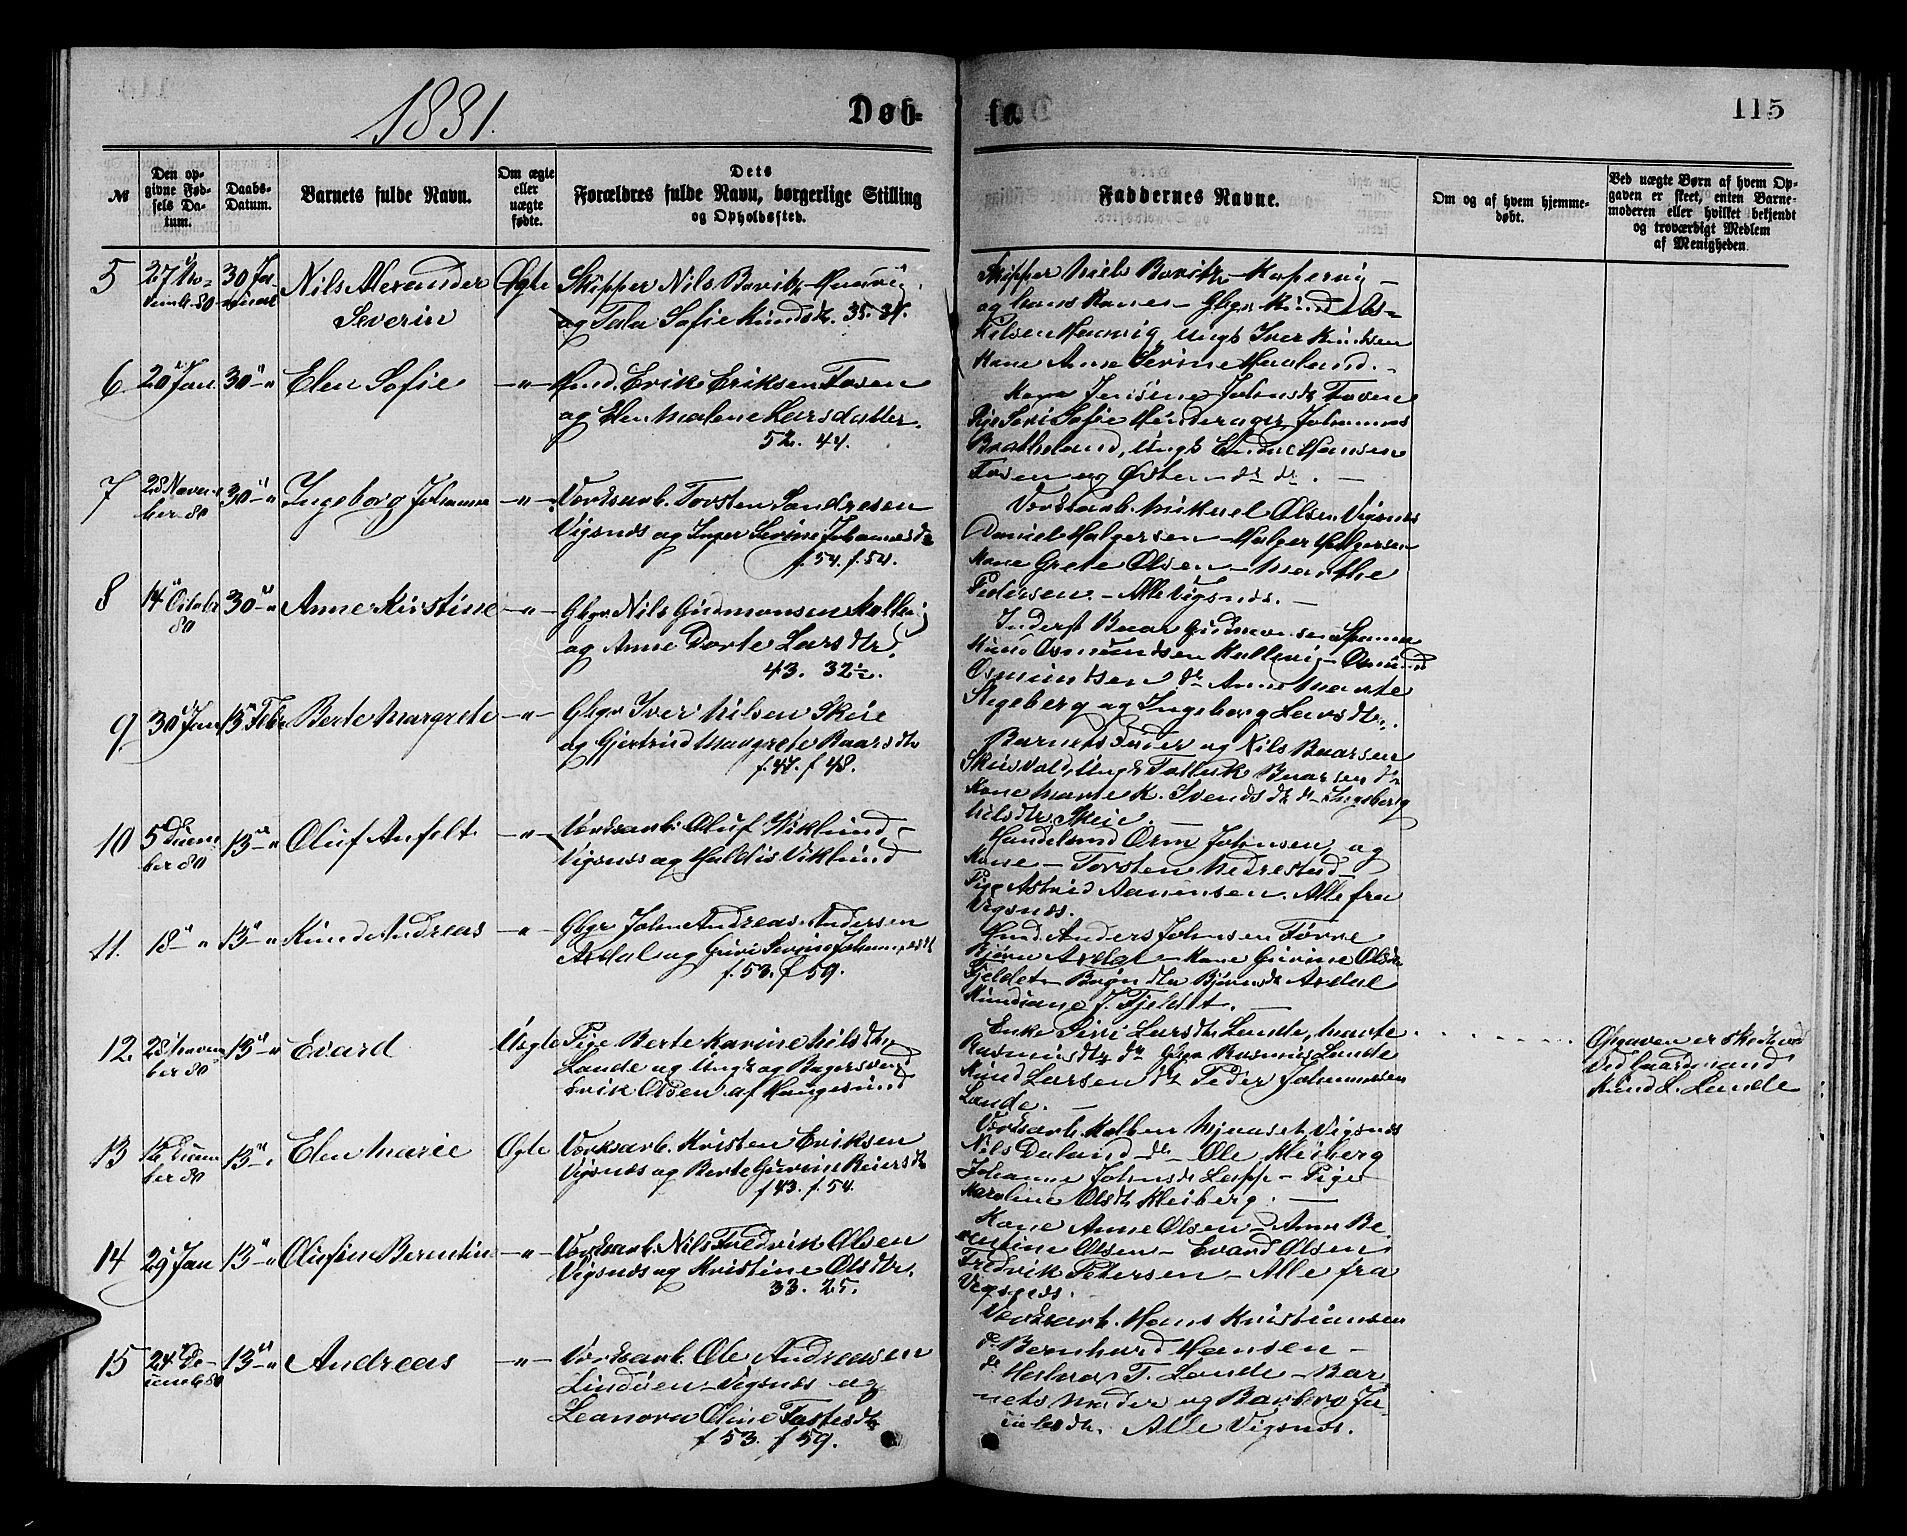 1881.
Døb-
te.
115
№
Den op-
givne Fød-
sels Da-
tum.
Daabs-
Datum.
Barnets fulde Navn.
Om ægte
eller
uægte
fødte.
Dets
Forældres fulde Navn, borgerlige Stilling
og Opholdssted.
Faddernes Navne.
Om og af hvem hjemme-
døbt.
Ved uægte Børn af hvem Op-
gaven er skeet, enten Barne-
moderen eller hvilket bekjendt
og troværdigt Medlem
af Menigheden.
5
27 No-
vemb. 80
30 Ja-
nuar
Nils Alexander
Severin
Ægte
Skipper Nils Bovitz
og Tala Sofie Knudsdtr. 35. 31.
Skipper Niels Bovitz Kopervig
og hans Kone - Gbgr. Knud As-
Ungk. Iver Knudsen
Kone Anne Serine Haaland.
6
20 Jan.
30 "
Elen Sofie
-"-
Hmd. Erik Eriksen Fosen
og Elen Malene Larsdatter.
52. 44.
Kone Jensine Johnsdtr. Fosen
Pige Seri Sofie Johannes
Ungk. Endre Hansen
Fosen og Østen do do.
7
28 Novem-
ber 80
30 "
Ingeborg Johanna
-"-
Værksarb. Torsten Sandresen
Vigsnæs og Inger Serine Johannesdtr.
f. 54. f. 54.
Værksarb. Mikael Olsen Vigsnes
Daniel Holgersen - Holger Holgersen
Kone Grete Olsen - Marthe
Pedersen. - Alle Vigsnæs.
8
14 October
80
30 "
Anne Kirstine
-"-
Gbgr. Nils Gudmonsen
og Anne Dorte Larsdtr.
43. 32½.
Inderst Baar Gudmonsen Spanne
Knud Osmundsen
Osmundsen do Anne Marte
Stegeberg og Ingeborg Larsdtr.
9
30 Jan
13 Febr
Berte Margrete
-"-
Gbgr. Iver Nilsen Skeie
og Gjertrud Margrete Baarsdtr.
f. 47. f. 48.
Barnets Fader og Nils Baarsen
Ungk. Tollek Baarsen do
Kone Marte K. Svendsdtr. do - Ingeborg
Nilsdtr. Skeie.
10
5 Decem-
ber 80
13 "
Oluf Anfelt
-"-
Værksarb. Oluf Wiklund
Vigsnæs og Haldis Viklund
Handelsmd. Orm Johnsen og
Kone - Torsten Medrestad
Pige Astrid Aanensen. Alle fra
Vigsnæs.
11.
18 "
13 "
Knud Andreas
-"-
Gbgr. John Andreas Andersen
Ardal og Guri Serine Johannesdtr.
f. 52. f. 59.
Hmd. Anders Johnsen Førre
Bjørn Ardal - Kone Gurine Olsdtr.
Fjeldet Bjørnsdtr. Ardal
J. Fjeldet.
12.
28 Novem-
ber 80
13 "
Evard
Uægte
Pige Berte Karine Nilsdtr.
Lande og Ungk. og Bagersvend
Erik Olsen af Haugesund
Enke Siri Larsdtr. Lande, Marte
Rasmusdtr. do Gbgr. Rasmus Lande
Knud Larsen do Peder Johannesen
Lande.
Opgaven er skeet ved
Gaardmand
Knud L. Lande
13
16 Decem-
ber 80
13 "
Elen Marie
Ægte
Værksarb. Kristen Eriksen
Vigsnæs og Berte Gurine Reiersdtr.
f. 43. f. 54.
Værksarb. Kolben Mjuaset Vigsnæs
Nils Daland do Ole Kleiberg
Johanne Johnsdtr. Leppe - Pige
Karoline Olsdtr. Kleiberg.
14
29 Jan
13 "
Olufin Berentin
-"-
Værksarb. Nils Fredrik Olsen
Vigsnæs og Kristine Olsdtr.
33. 25.
Kone Anne Olsen - Anne Be-
rentine Olsen - Evard Olsen
Fredrik Petersen - Alle fra
Vigsnæs.
15
24 De-
cemb. 80
13 "
Andreas
-"-
Værksarb. Ole Andreasen
Lindøen - Vigsnæs og
Leanora Oline Tastesdtr.
f 53. f 59.
Værksarb. Hans Kristiansen
do Bernhard Hansen -
do T. Lande - Bar-
nets Moder og Barbro Ja-
cobsdtr. Alle Vigsnæs.